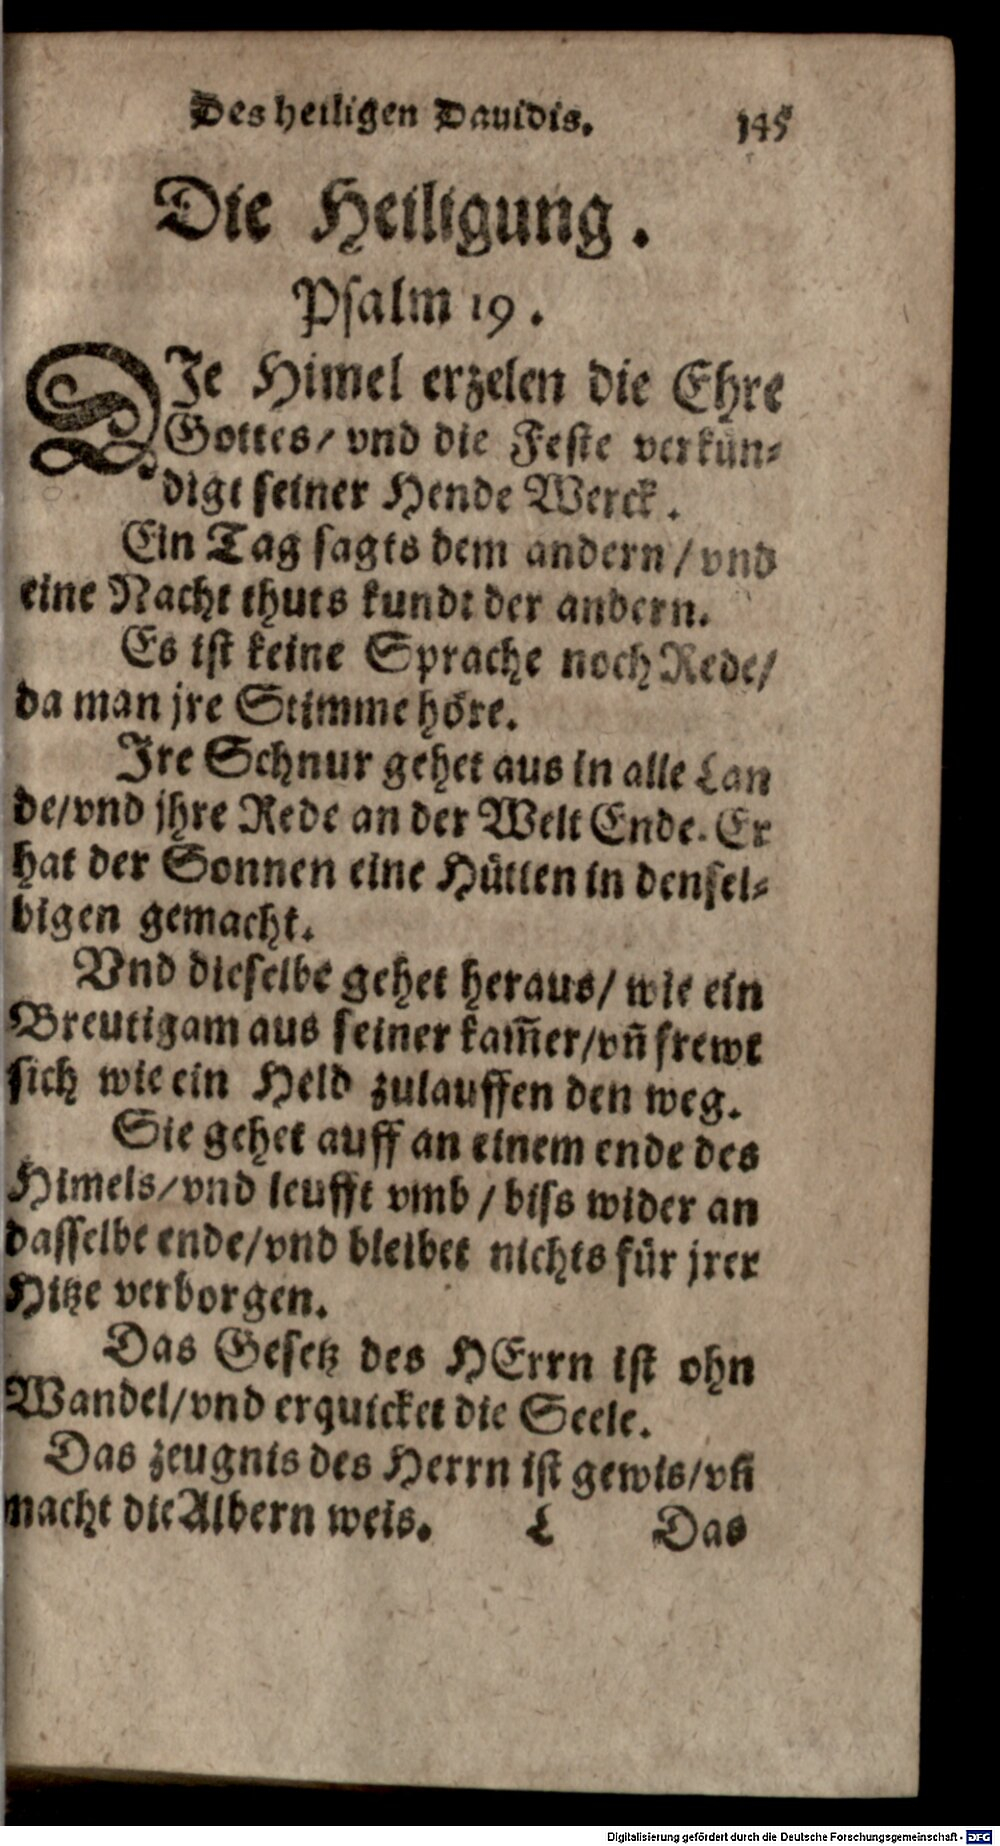 Des heiligen Dauidis. 145
Die Heiligung.
Psalm 19.
DIe Himel erzelen die Ehre
Gottes/ vnd die Feste verkün-
digt seiner Hende Werck.
Ein Tag sagts dem andern/ vnd
eine Nacht thuts kundt der andern.
Es ist keine Sprache noch Rede/
da man jre Stimme höre.
Ire Schnur gehet aus in alle Lan
de/vnd jhre Rede an der Welt Ende. Er
hat der Sonnen eine Hütten in densel-
bigen gemacht.
Vnd dieselbe gehet heraus/ wie ein
Breutigam aus seiner kam̄er/vn̄ frewt
sich wie ein Held zulauffen den weg.
Sie gehet auff an einem ende des
Himels/vnd leufft vmb / biss wider an
dasselbe ende/vnd bleibet nichts für jrer
Hitze verborgen.
Das Gesetz des HErrn ist ohn
Wandel/vnd erquicket die Seele.
Das zeugnis des Herrn ist gewis/vn̄
macht die Albern weis. L Das
Digitalisierung gefördert durch die Deutsche Forschungsgemeinschaft - DFG